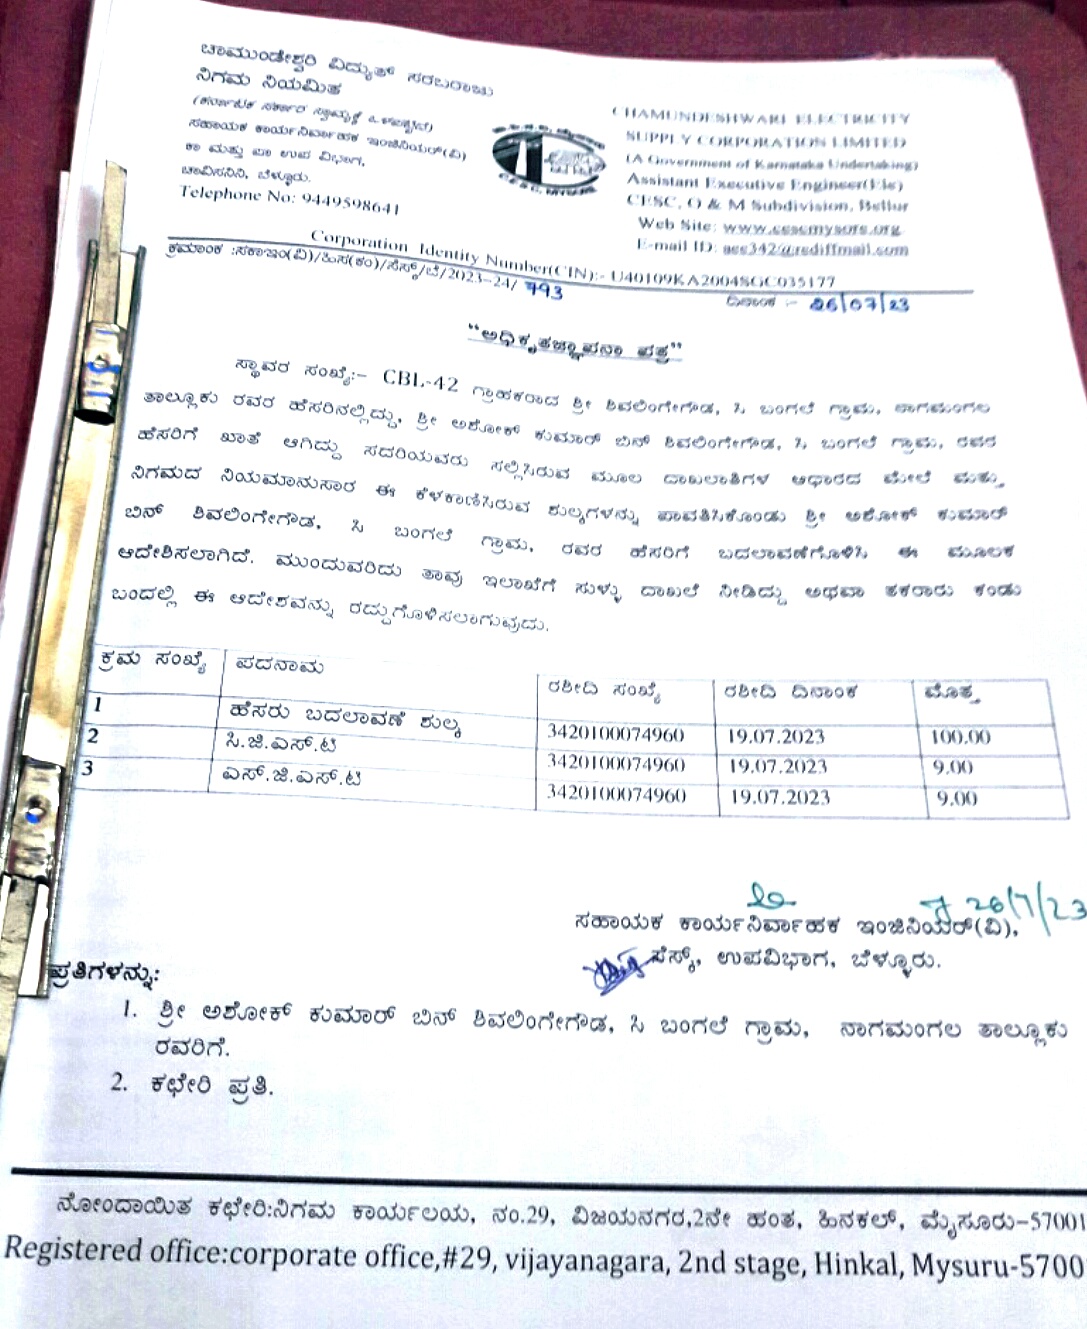 ಚಾಮುಂಡೇಶ್ವರಿ ವಿದ್ಯುತ್ ಸರಬರಾಜು
ನಿಗಮ ನಿಯಮಿತ
(ಕರ್ನಾಟಕ ಸರ್ಕಾರ ಸ್ವಾಮ್ಯಕ್ಕೆ ಒಳಪಟ್ಟಿದೆ)
ಸಹಾಯಕ ಕಾರ್ಯನಿರ್ವಾಹಕ ಇಂಜಿನಿಯರ್(ವಿ)
ಕಾ ಮತ್ತು ಪಾ ಉಪ ವಿಭಾಗ,
ಚಾವಿಸನಿನಿ, ಬೆಳ್ಳೂರು.
Telephone No: 9449598641
CHAMUNDESHWARI ELECTRICITY
SUPPLY CORPORATION LIMITED
(A Government of Karnataka Undertaking)
Assistant Executive Engineer(Ele)
CESC, O & M Subdivision, Bellur
Web Site: www.cescmysore.org
E-mail ID: aee342@rediffmail.com
CESC, MYSORE
Corporation Identity Number(CIN):- U40109KA2004SGC035177
ಕ್ರಮಾಂಕ :ಸಕಾಇಂ(ವಿ)/ಹಿಸ(ಕಂ)/ಸೆಸ್ಕ್/ಬೆ/2023-24/ 793
ದಿನಾಂಕ :- 26/07/23
"ಅಧಿಕೃತಜ್ಞಾಪನಾ ಪತ್ರ"
ಸ್ಥಾವರ ಸಂಖ್ಯೆ:- CBL-42 ಗ್ರಾಹಕರಾದ ಶ್ರೀ ಶಿವಲಿಂಗೇಗೌಡ, ಸಿ ಬಂಗಲೆ ಗ್ರಾಮ, ನಾಗಮಂಗಲ
ತಾಲ್ಲೂಕು ರವರ ಹೆಸರಿನಲ್ಲಿದ್ದು, ಶ್ರೀ ಅಶೋಕ್ ಕುಮಾರ್ ಬಿನ್ ಶಿವಲಿಂಗೇಗೌಡ, ಸಿ ಬಂಗಲೆ ಗ್ರಾಮ, ರವರ
ಹೆಸರಿಗೆ ಖಾತೆ ಆಗಿದ್ದು ಸದರಿಯವರು ಸಲ್ಲಿಸಿರುವ ಮೂಲ ದಾಖಲಾತಿಗಳ ಆಧಾರದ ಮೇಲೆ ಮತ್ತು
ನಿಗಮದ ನಿಯಮಾನುಸಾರ ಈ ಕೆಳಕಾಣಿಸಿರುವ ಶುಲ್ಕಗಳನ್ನು ಪಾವತಿಸಿಕೊಂಡು ಶ್ರೀ ಅಶೋಕ್ ಕುಮಾರ್
ಬಿನ್ ಶಿವಲಿಂಗೇಗೌಡ, ಸಿ ಬಂಗಲೆ ಗ್ರಾಮ, ರವರ ಹೆಸರಿಗೆ ಬದಲಾವಣೆಗೊಳಿಸಿ ಈ ಮೂಲಕ
ಆದೇಶಿಸಲಾಗಿದೆ. ಮುಂದುವರಿದು ತಾವು ಇಲಾಖೆಗೆ ಸುಳ್ಳು ದಾಖಲೆ ನೀಡಿದ್ದು ಅಥವಾ ತಕರಾರು ಕಂಡು
ಬಂದಲ್ಲಿ ಈ ಆದೇಶವನ್ನು ರದ್ದುಗೊಳಿಸಲಾಗುವುದು.
ಕ್ರಮ ಸಂಖ್ಯೆ ಪದನಾಮ ರಶೀದಿ ಸಂಖ್ಯೆ ರಶೀದಿ ದಿನಾಂಕ ಮೊತ್ತ
1 ಹೆಸರು ಬದಲಾವಣೆ ಶುಲ್ಕ 3420100074960 19.07.2023 100.00
2 ಸಿ.ಜಿ.ಎಸ್.ಟಿ 3420100074960 19.07.2023 9.00
3 ಎಸ್.ಜಿ.ಎಸ್.ಟಿ 3420100074960 19.07.2023 9.00
26/7/23
ಸಹಾಯಕ ಕಾರ್ಯನಿರ್ವಾಹಕ ಇಂಜಿನಿಯರ್(ವಿ),
ಸೆಸ್ಕ್, ಉಪವಿಭಾಗ, ಬೆಳ್ಳೂರು.
ಪ್ರತಿಗಳನ್ನು:
1. ಶ್ರೀ ಅಶೋಕ್ ಕುಮಾರ್ ಬಿನ್ ಶಿವಲಿಂಗೇಗೌಡ, ಸಿ ಬಂಗಲೆ ಗ್ರಾಮ, ನಾಗಮಂಗಲ ತಾಲ್ಲೂಕು
ರವರಿಗೆ.
2. ಕಛೇರಿ ಪ್ರತಿ.
ನೋಂದಾಯಿತ ಕಛೇರಿ:ನಿಗಮ ಕಾರ್ಯಲಯ, ನಂ.29, ವಿಜಯನಗರ,2ನೇ ಹಂತ, ಹಿನಕಲ್, ಮೈಸೂರು-57001
Registered office:corporate office,#29, vijayanagara, 2nd stage, Hinkal, Mysuru-5700